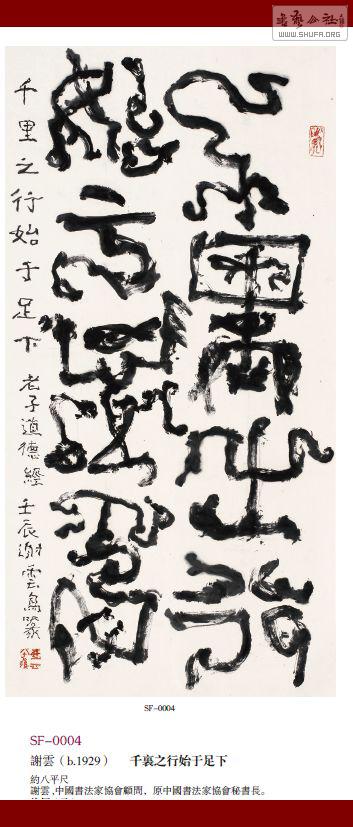 WWW.SHUFA.ORG
千里之行
始于足下
千里之行始于足下 老子道德經 壬辰謝雲鳥篆
SF-0004
SF-0004
謝雲（b.1929） 千裏之行始于足下
約八平尺
謝雲,中國書法家協會顧問，原中國書法家協會秘書長。